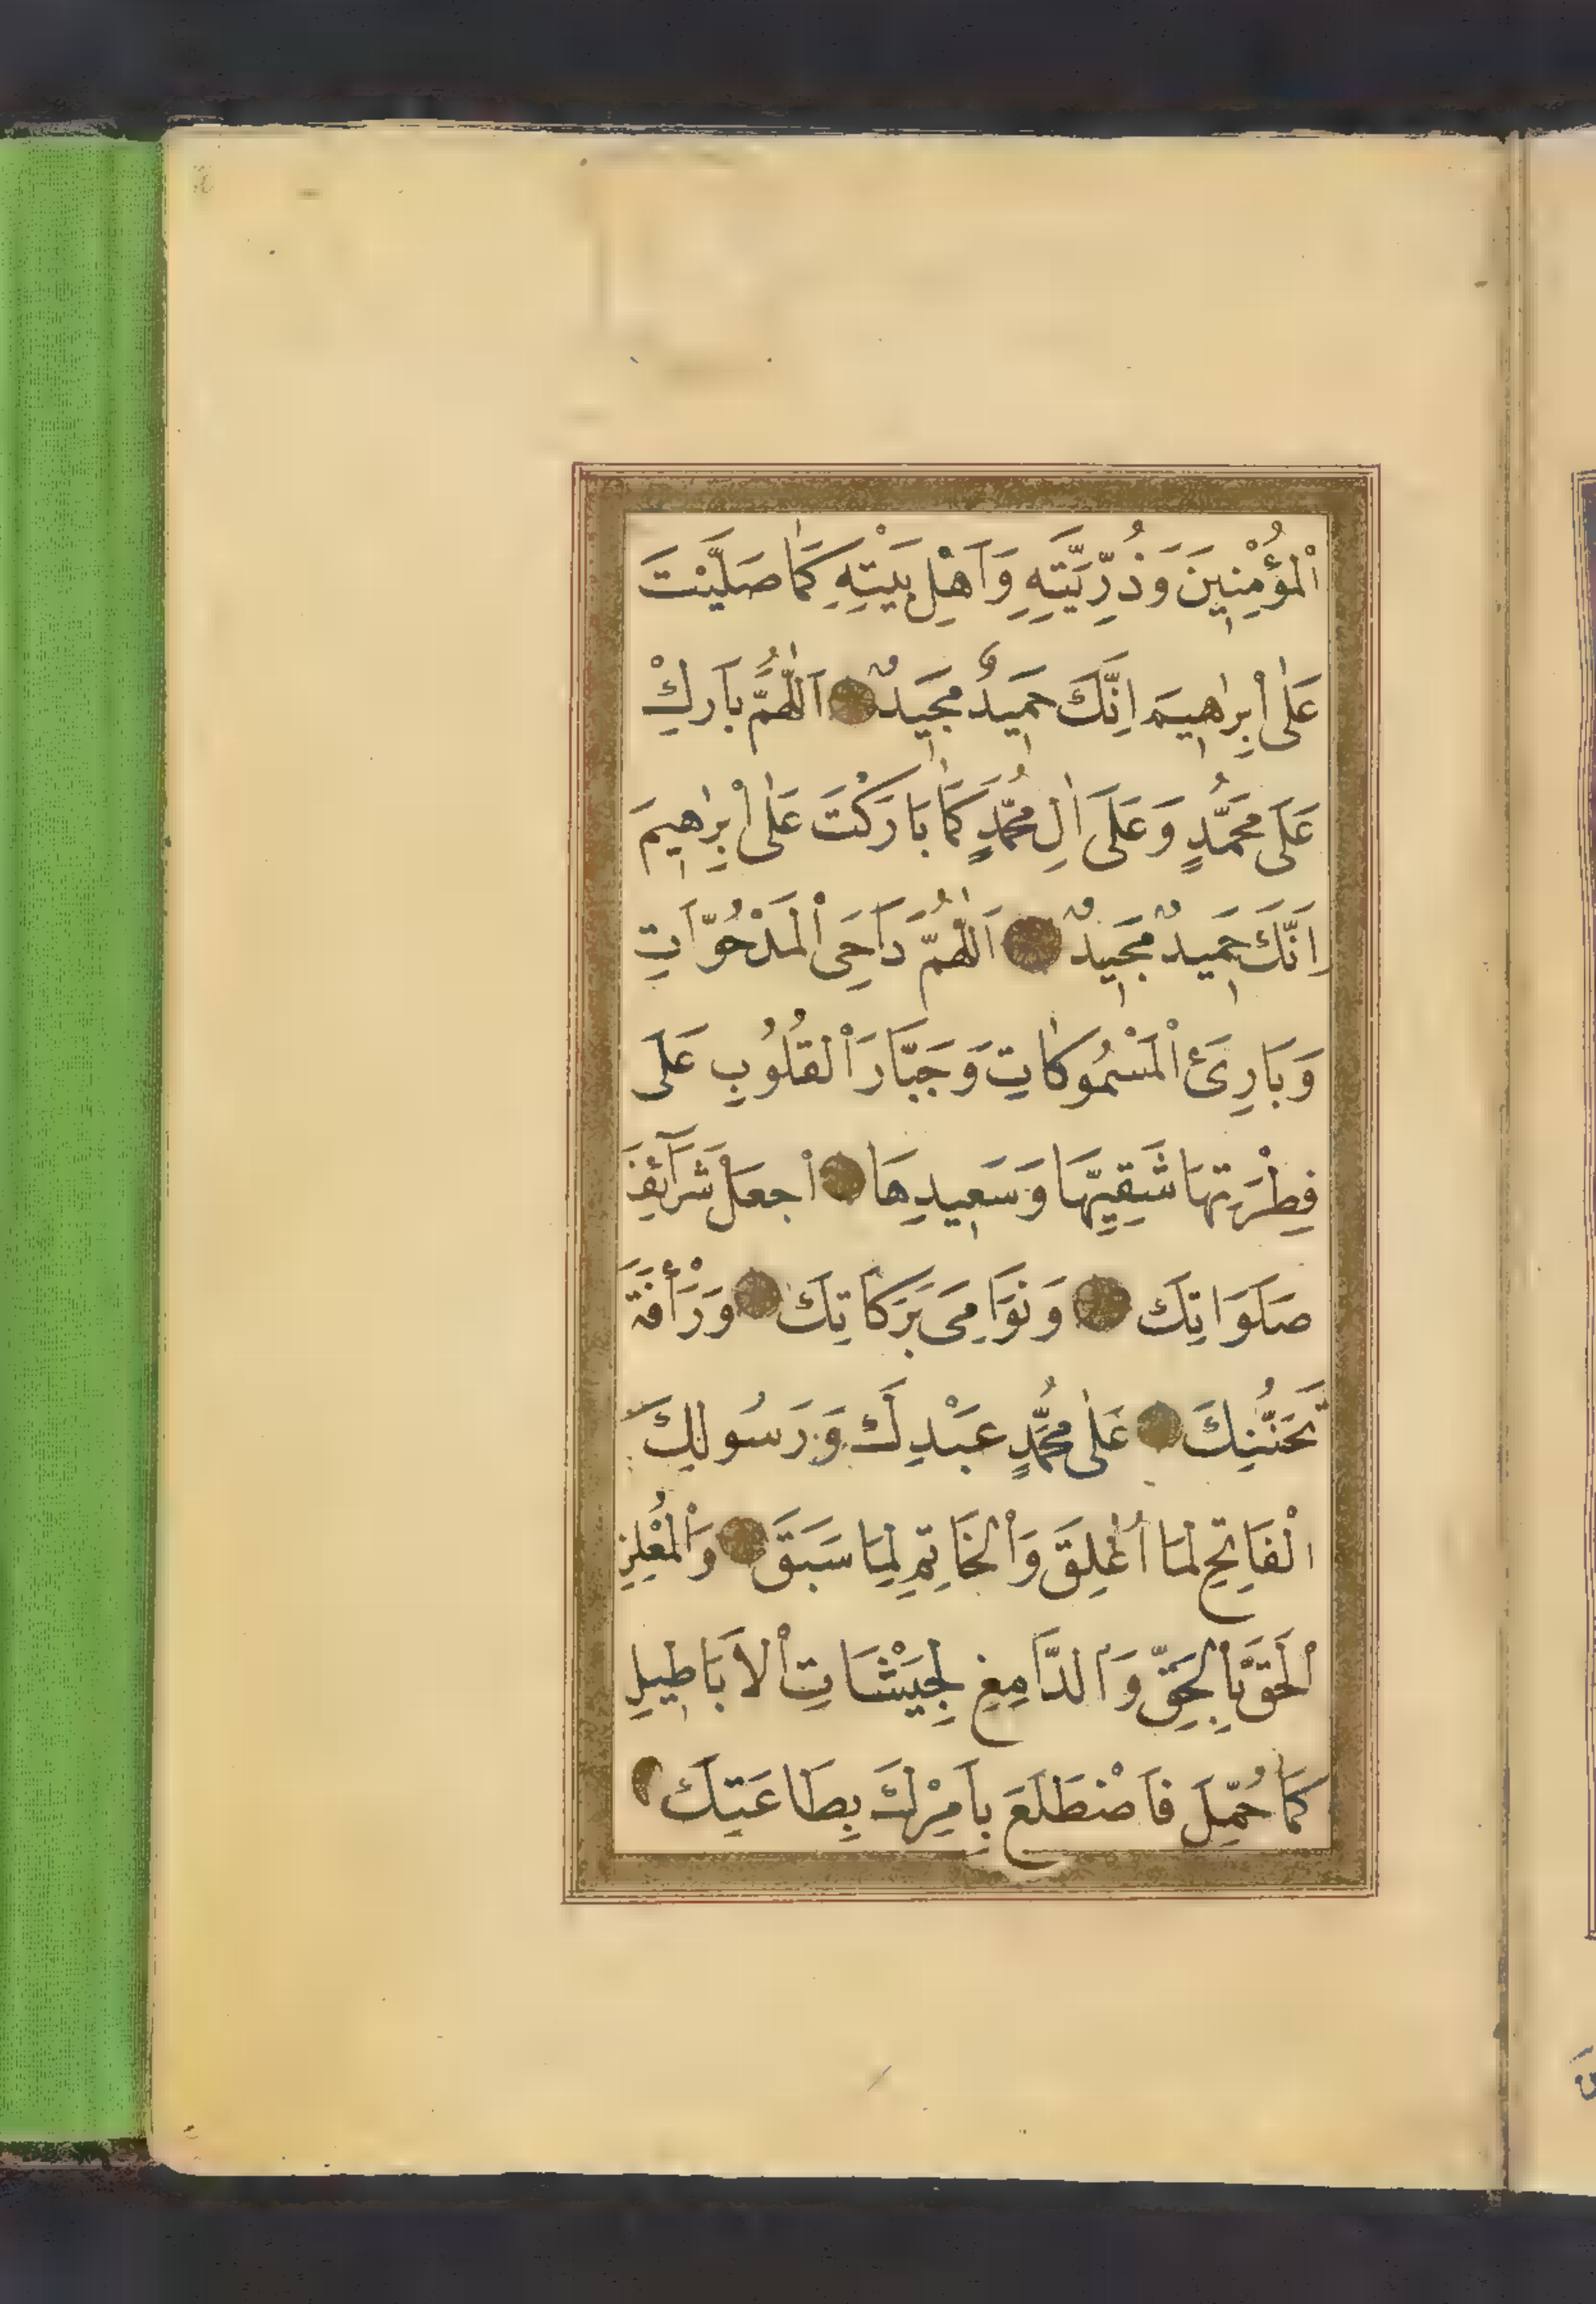 الْمُؤْمِنِينَ وَذُرِّيَّتِهِ وَاَهْلِ بَيْتِهِ كَمَا صَلَّيْتَ
عَلٰى اِبْرٰهِيمَ اِنَّكَ حَمِيدٌ مَجِيدٌ اَللّٰهُمَّ بَارِكْ
عَلَى مُحَمَّدٍ وَعَلَى اٰلِ مُحَمَّدٍ كَمَا بَارَكْتَ عَلٰى اِبْرٰهِيمَ
اِنَّكَ حَمِيدٌ مَجِيدٌ اَللّٰهُمَّ دَاحِىَ الْمَدْحُوَّاتِ
وَبَارِئَ الْمَسْمُوكَاتِ وَجَبَّارَ الْقُلُوبِ عَلَى
فِطْرَتِهَا شَقِيِّهَا وَسَعِيدِهَا اجْعَلْ شَرَآئِفَ
صَلَوَاتِكَ وَنَوَامِىَ بَرَكَاتِكَ وَرَأْفَةَ
تَحَنُّنِكَ عَلٰى مُحَمَّدٍ عَبْدِكَ وَرَسُولِكَ
الْفَاتِحِ لِمَا اُغْلِقَ وَالْخَاتِمِ لِمَا سَبَقَ وَالْمُعْلِنِ
الْحَقَّ بِالْحَقِّ وَالدَّامِغِ لِجَيْشَاتِ الْاَبَاطِيلِ
كَمَا حُمِّلَ فَاضْطَلَعَ بِاَمْرِكَ بِطَاعَتِكَ